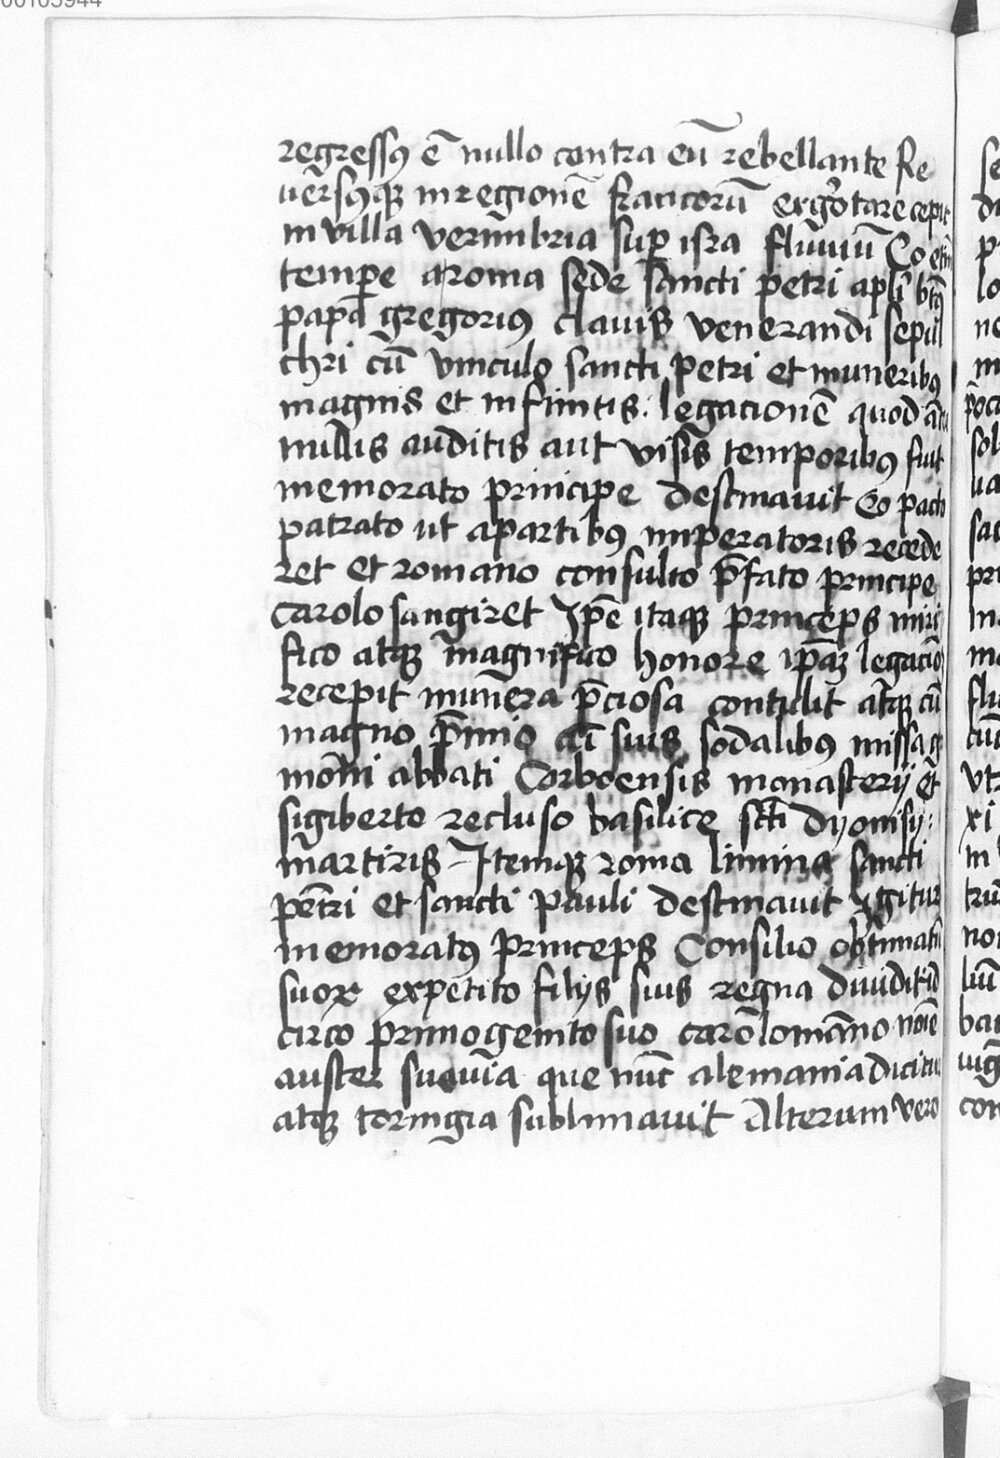 regressꝰ ē nullo contra eū rebellante Re
uersꝰqꝫ in regionē francorū ergo tare cepit
in villa verimbria suꝑ isra fluuiū Eo etī
tempe a roma sede sancti petri apl̄i btꝰ
papa gregoriꝰ clauis venerandi sepul
chri cū vinculo sancti petri et muneribꝰ
magnis et infinitis: legacionē quod ātea
nullis auditis aut visis temporibꝰ fuit
memorato principe destinauit Eo pacto
patrato ut a partibꝰ imperatoris recede
ret et romano consulto p̄fato principe
Carolo sangiret Ip̄e itaqꝫ princeps miri
fico atqꝫ magnifico honore ip̄aꝫ legacio
recepit munera p̄ciosa contulit atqꝫ cū
magno p̄mio cū suis sodalibꝰ missa g
moni abbati Corboensis monasterij et
sigiberto recluso basilice sct̄i dyonisij:
martiris Itemqꝫ roma limina sancti
petri et sancti pauli destinauit Igitur
memoratꝰ princeps Consilio obtimatū
suoꝝ expetito filijs suis regna diuidit id
circo primogenito suo carolomāno noīe
auster sueuia que nūc alemania dicitur
atqꝫ toringia sublimauit Alterum vero